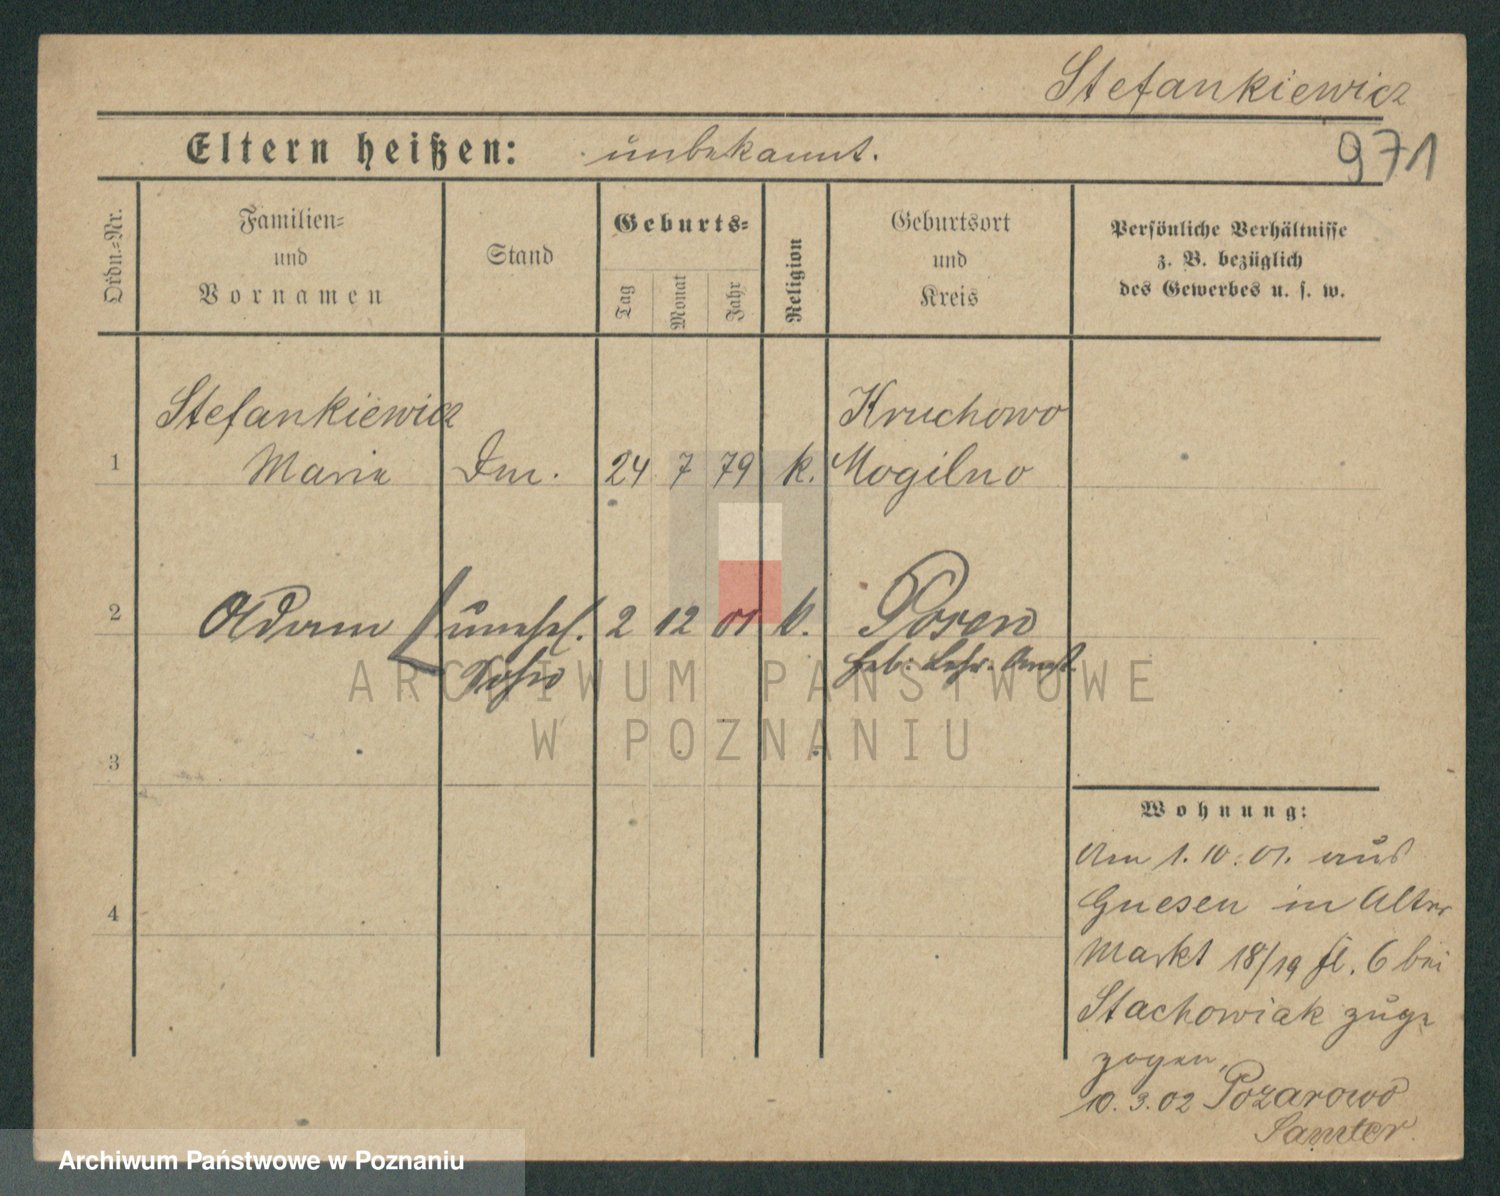 Stefankiewicz
971
Eltern heißen: unbekannt.
Ordn.-Nr.
Familien-
und
Vornamen
Stand
Geburts-
Tag
Monat
Jahr
Religion
Geburtsort
und
Kreis
Persönliche Verhältnisse
z. B. bezüglich
des Gewerbes u. s. w.
Stefankiewicz Kruchowo
1 Maria 24 7 79 k. Mogilno
2 Adam unehel. 2 12 01 k. Posen
Sohn Heb. Lehr. Anst.
3
4
Wohnung:
Am 1. 10. 01. aus
Gnesen in Alter
Markt 18/19 fl. 6 bei
Stachowiak zuge
zogen.
10. 3. 02 Pozarowo
Samter
ARCHIWUM PAŃSTWOWE
W POZNANIU
Archiwum Państwowe w Poznaniu